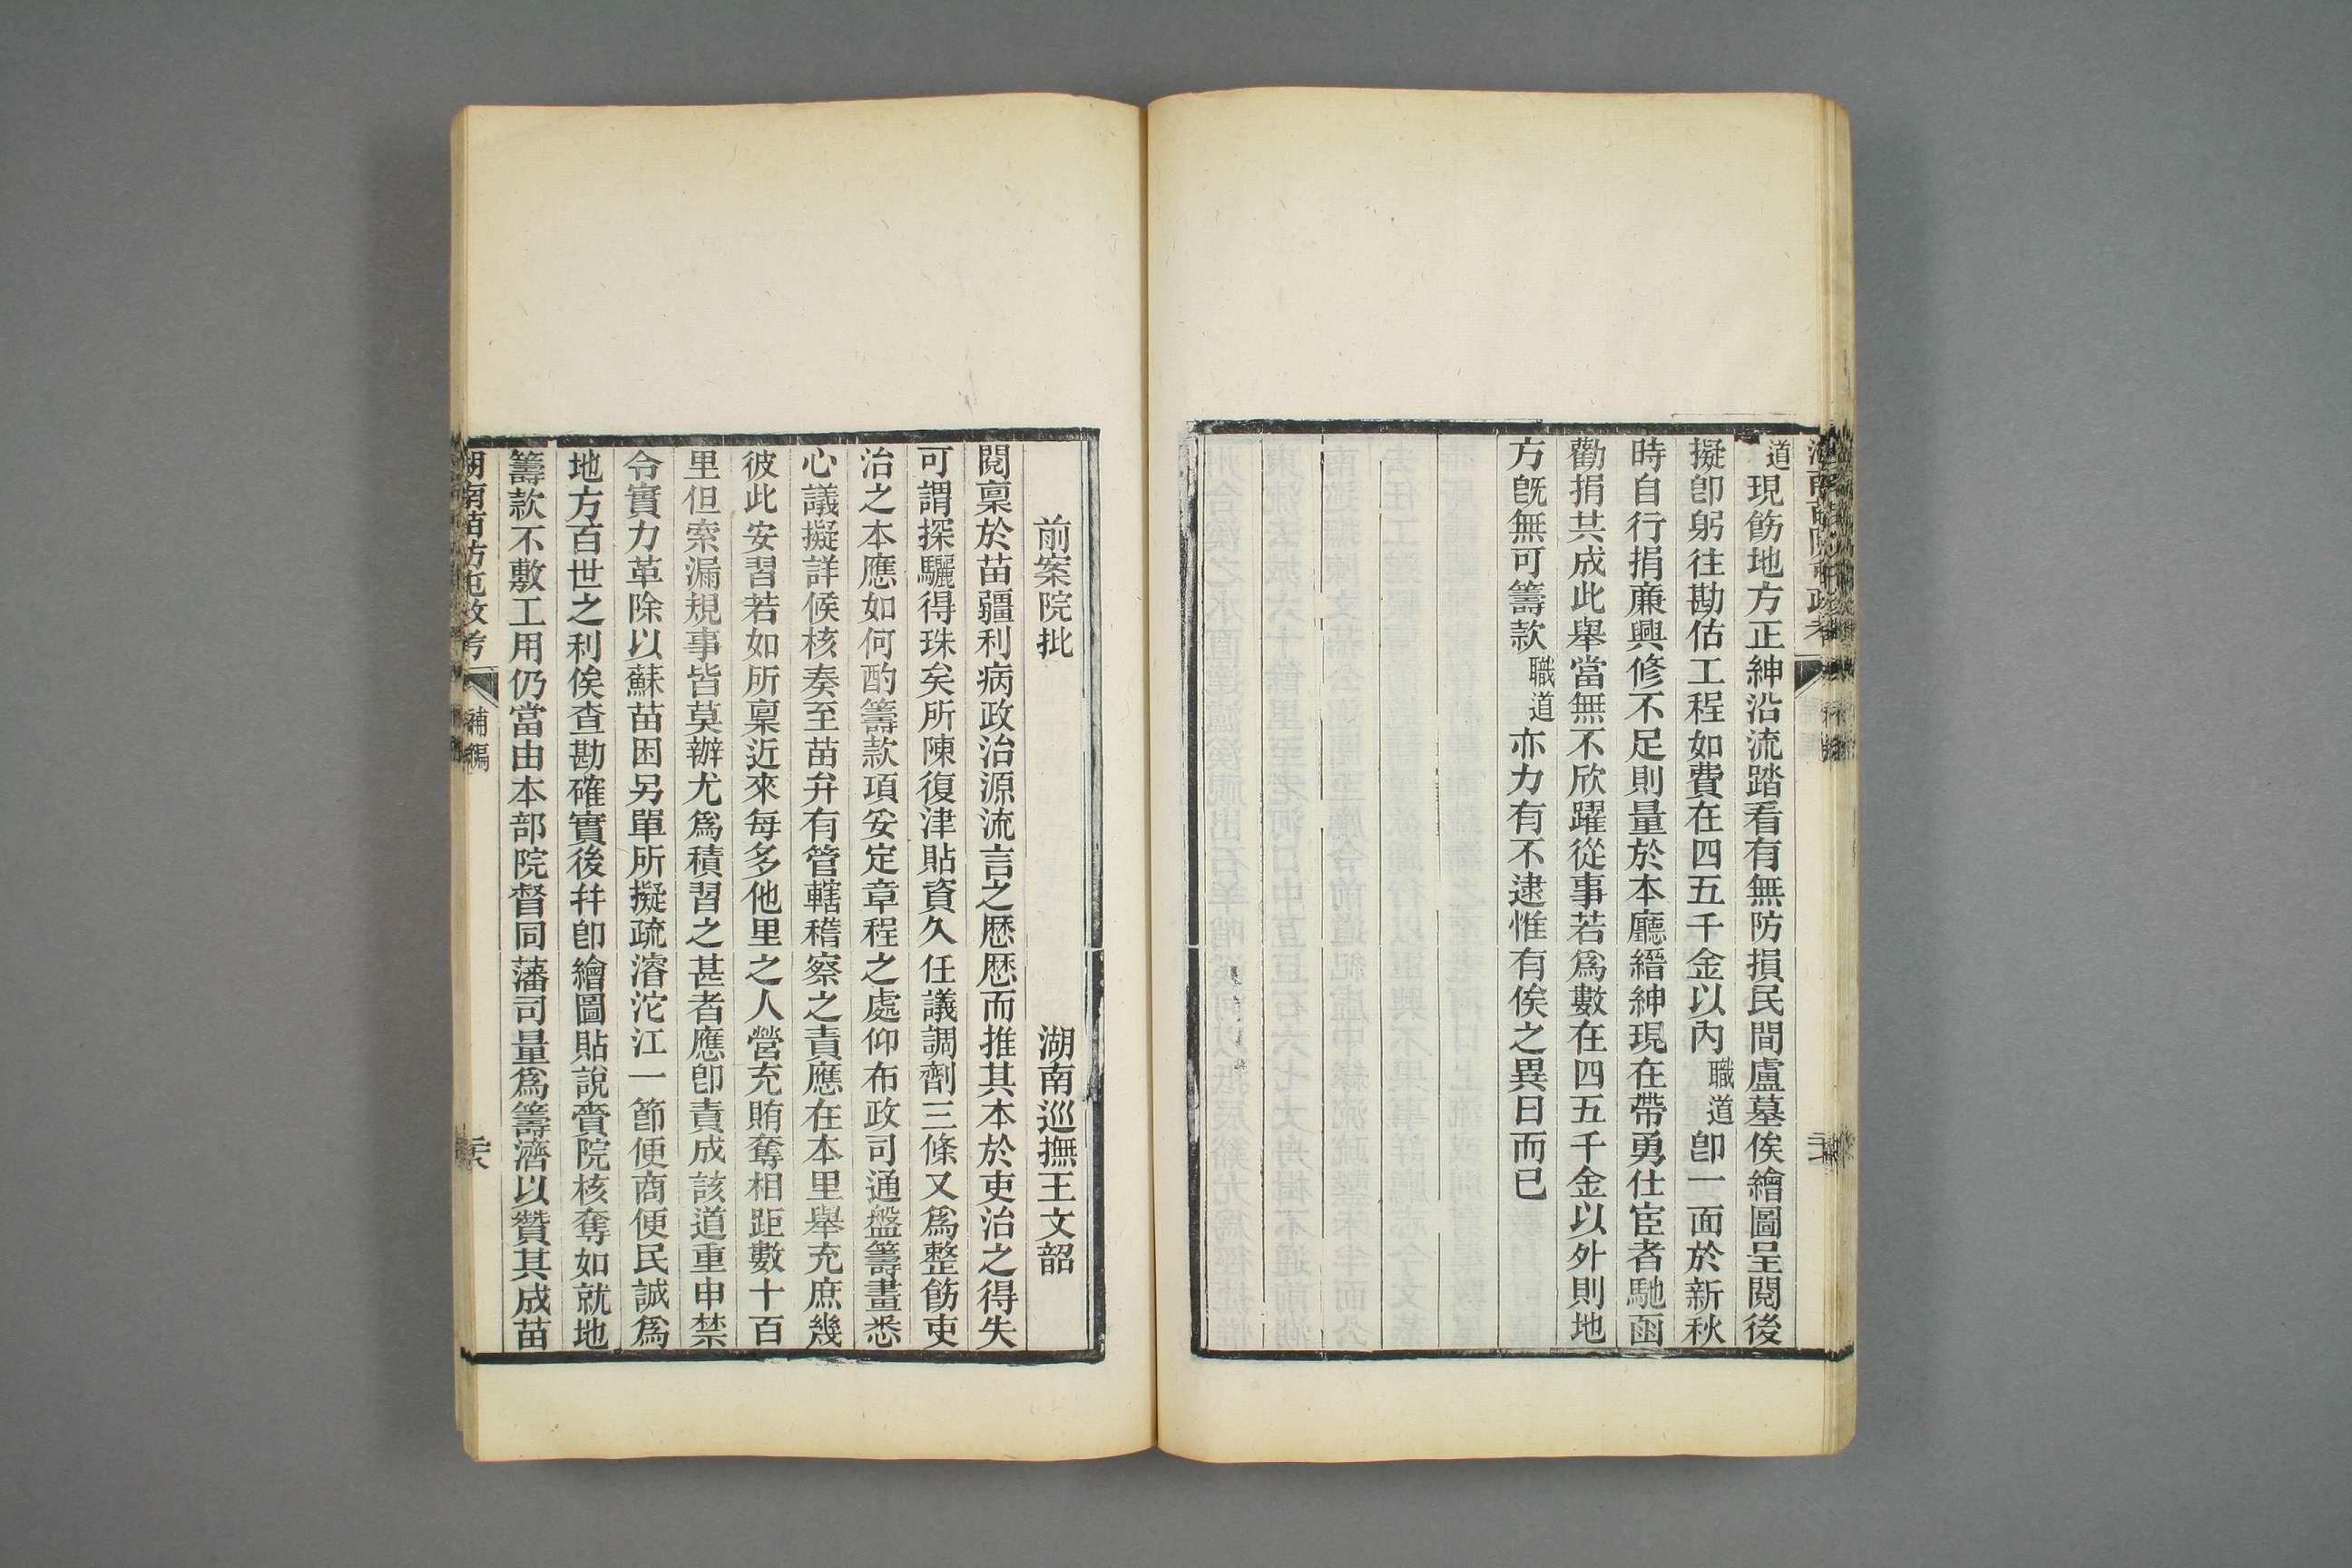 道現飭地方正紳沿流踏看有無防損民間盧墓俟繪圖呈閱後
擬卽躬往勘估工程如費在四五千金以內職道卽一面於新秋
時自行捐廉興修不足則量於本廳縉紳現在帶勇仕宦者馳函
勸捐共成此舉當無不欣躍從事若爲數在四五千金以外則地
方旣無可籌款職道亦力有不逮惟有俟之異日而已
前案院批 湖南巡撫王文韶
閱稟於苗疆利病政治源流言之歷歷而推其本於吏治之得失
可謂探驪得珠矣所陳復津貼資久任議調劑三條又爲整飭吏
治之本應如何酌籌款項妥定章程之處仰布政司通盤籌畫悉
心議擬詳候核奏至苗弁有管轄稽察之責應在本里舉充庶幾
彼此安習若如所稟近來每多他里之人營充賄奪相距數十百
里但索漏規事皆莫辦尤爲積習之甚者應卽責成該道重申禁
令實力革除以蘇苗困另單所擬疏濬沱江一節便商便民誠爲
地方百世之利俟查勘確實後幷卽繪圖貼說賫院核奪如就地
籌款不敷工用仍當由本部院督同藩司量爲籌濟以贊其成苗
湖南苗防屯政考 補編